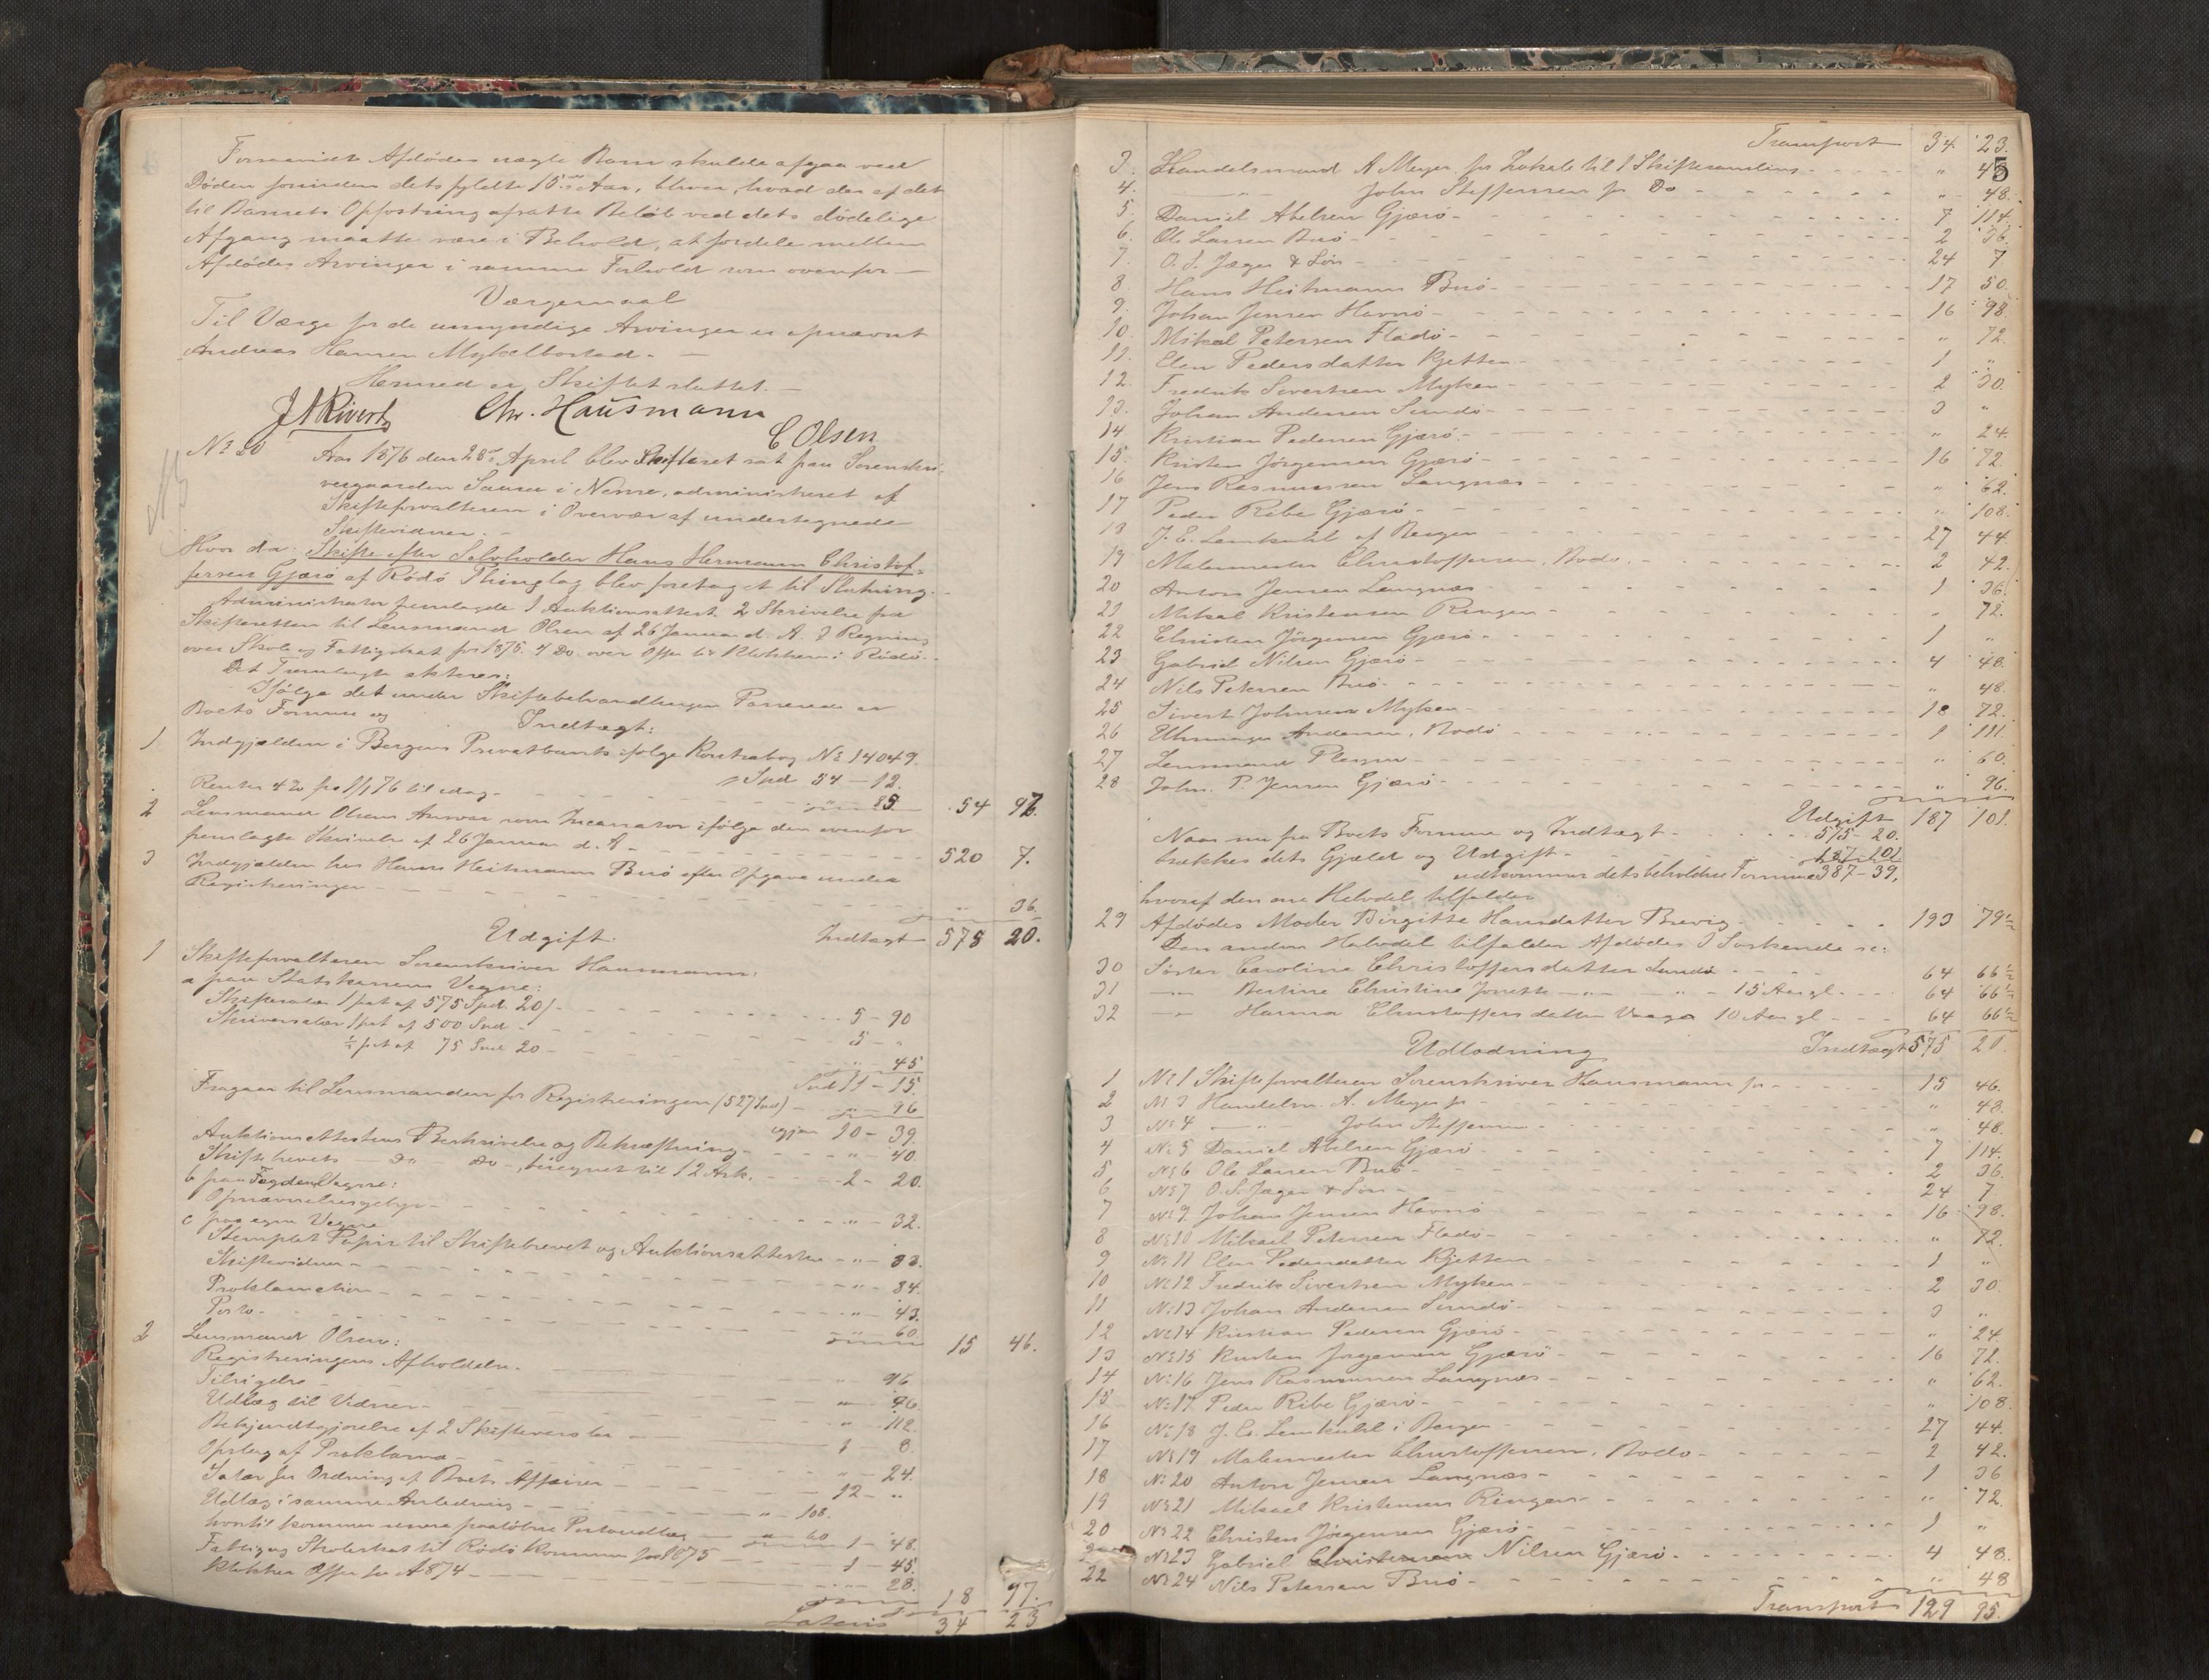 Forsaavidt Afdødes uægte Barn skulde afgaa ved
Døden forinden dets fyldte 15de Aar, bliver, hvad der af det
til Barnets Opfostring afsatte Beløb ved dets dødelige
Afgang maatte være i Behold, at fordele mellem
Afdødes Arvinger i samme Forhold som ovenfor —
Værgemaal
Til Værge for de umyndige Arvinger er opnævnt
Andreas Hansen Mykelbostad. —
Hermed er Skiftet sluttet. —
Chr. Hausmann
C Olsen
No 20
Aar 1876 den 28de April blev Skifteret sat paa Sorenskri-
vergaarden Sauren i Nesne, administreret af
Skifteforvalteren i Overvær af undertegnede
Skiftevidner. —
Hvor da: Skifte efter Selveholder Hans Hermann Christof-
fersen Gjærø af Rødø Thinglag blev foretaget til Slutning. —
Administrator fremlagde 1 Auktionsattest. 2 Skrivelse fra
Skifteretten til Lensmand Olsen af 26 Januar d. A. 3 Regning
over Skole og Fattigskat for 1875. 4 Do over Offer til Klokkeren i Rødø. —
Det Fremlagte akteres:
Ifølge det under Skiftebehandlingen Passerede er
Boets Formue og
Indtægt:
1 Indgjælden i Bergens Privatbank ifølge Kontrabog No 14049.
Spd 54 – 12.
Renter 4% fra 1/1 76 til idag – 85. 54 97.
2 Lensmand Olsens Ansvar som Incassator ifølge den ovenfor
fremlagte Skrivelse af 26 Januar d. A – 520 7.
3 Indgjælden hos Hans Heitmann Buø efter Opgave under
Registreringen – " 36.
Indtægt 575 20.
Udgift:
1 Skifteforvalteren Sorenskriver Hausmann:
a paa Statskassens Vegne:
Skiftesalær 1 pct af 575 Spd. 20 ß. – 5 – 90
Skriversalær 1 pct af 500 Spd – 5 – "
½ pct af 75 Spd 20 – " – 45
Spd 11 – 15.
Fragaar til Lensmanden for Registreringen (527 Spd) – " – 96
igjen 10 – 39.
Auktionsattestens Beskrivelse og Bekræftning – " – 40
Skiftebrevets — Do — Do —, beregnet til 12 Ark. – 2 – 20.
b paa Fogdens Vegne:
Opnævnelsesgebyr – " – 32.
c paa egne Vegne
Stemplet Papir til Skiftebrevet og Auktionsattesten – " – 33.
Skiftevidner – " – 84.
Proklamation – " – 43.
Porto – " – 60. 15 46.
2 Lensmand Olsen:
Registreringens Afholdelse. – " – 96
Tilsigelse –
Udlæg til Vidner –
Bekjendtgjørelse af 2 Skiftesamlinger –
Opslag af Proklama – " – 24.
Salær for Ordning af Boets Affairer – 12 – "
Udlæg i samme Anledning – " – 108.
hvortil kommer senere paaløbne Portoudlæg – " 60 1 – 48.
Fattig og Skoleskat til Rødø Kommune for 1875 – 1 – 45.
Klokker Offer for A 1874 – " – 28. 18 97.
Lateris 34 23
Transport 34 23.
3. Handelsmand A Meyer for Lokale til 1 Skiftesamling – " 48
4. —"— John Steffensen for Do – " 48.
5. Daniel Abelsen Gjærø – 7 114.
6. Ole Larsen Buø – 2 36.
7. O. S. Jæger & Søn – 24 7
8. Hans Heitmann Buø – 17 50.
9. Johan Jensen Havnø – 16 98.
10. Mikal Petersen Fladø – " 72.
11. Elen Pedersdatter Kjetten – 1 "
12. Fredrik Sivertsen Myken – 2 30.
13. Johan Andersen Sundø – 3 "
14 Kristian Pedersen Gjærø. – " 24.
15. Kristen Jørgensen Gjærø – 16 72.
16 Jens Rasmussen Langnæs – " 62.
17 Peder Ribe Gjærø – " 108.
18 J. E. Lemkuhl af Bergen – 27 44.
19 Malermester Christoffersen, Bodø. – 2 42.
20 Anton Jensen Langnæs – 1 36.
21 Mikal Kristensen Ringen – " 72.
22 Christen Jørgensen Gjærø – 1 "
23 Gabriel Nilsen Gjærø – 4 48.
24 Nils Petersen Buø – " 48.
25 Sivert Johnsen Myken – 18 72.
26 Uhrmager Andersen, Bodø – 1 111.
27 Lensmand – " 60.
28 John. P. Jensen Gjærø – " 96.
Udgift 187 101.
Naar nu fra Boets Formue og Indtægt – 575 – 20.
trækkes dets Gjæld og Udgift – 187 – 101
udkommer dets beholdne Formue 387 – 39.
hvoraf den ene Halvdel tilfalder
29 Afdødes Moder Birgitte Hansdatter Brevig – 193 79½
Den anden Halvdel tilfalder Afdødes 3 Søskende sc:
30 Søster Caroline Christoffersdatter Sundø – 64 66½
31 —"— Bertine Christine Jonette —"— " – 15 Aar gl. – 64 66½
32 —"— Hanna Christoffersdatter Vaaga 10 Aar gl – 64 66½
Indtægt 575 20.
Udlodning
1 No 1 Skifteforvalteren Sorenskriver Hausmann for – 15 46.
2 No 3 Handelsm. A. Meyer for – " 48.
3 No 4 —"— John Steffensen – " 48.
4 No 5 Daniel Abelsen Gjærø – 7 114.
5 No 6 Ole Larsen Buø – 2 36.
6 No 7 O. S. Jæger & Søn – 24 7
7 No 9 Johan Jensen Havnø – 16 98.
8 No 10 Mikael Petersen Fladø – " 72.
9 No 11 Elen Pedersdatter Kjetten – 1 "
10 No 12 Fredrik Sivertsen Myken – 2 30.
11 No 13 Johan Andersen Sundø – 3 "
12 No 14 Kristian Pedersen Gjærø – " 24.
13 No 15 Kristen Jørgensen Gjærø – 16 72.
14 No 16 Jens Rasmussen Langnæs – " 62.
15 No 17 Peder Ribe Gjærø – " 108.
16 No 18 J. E. Lemkuhl i Bergen – 27 44.
17 No 19 Malermester Christoffersen, Bodø – 2 42.
18 No 20 Anton Jensen Langnæs – 1 36
19 No 21 Mikael Kristensen Ringen – " 72.
20 No 22 Christen Jørgensen Gjærø – 1 "
No 23 Gabriel Christensen Nilsen Gjærø. – 4 48.
22 No 24 Nils Petersen Buø – " 48
Transport 129 95.